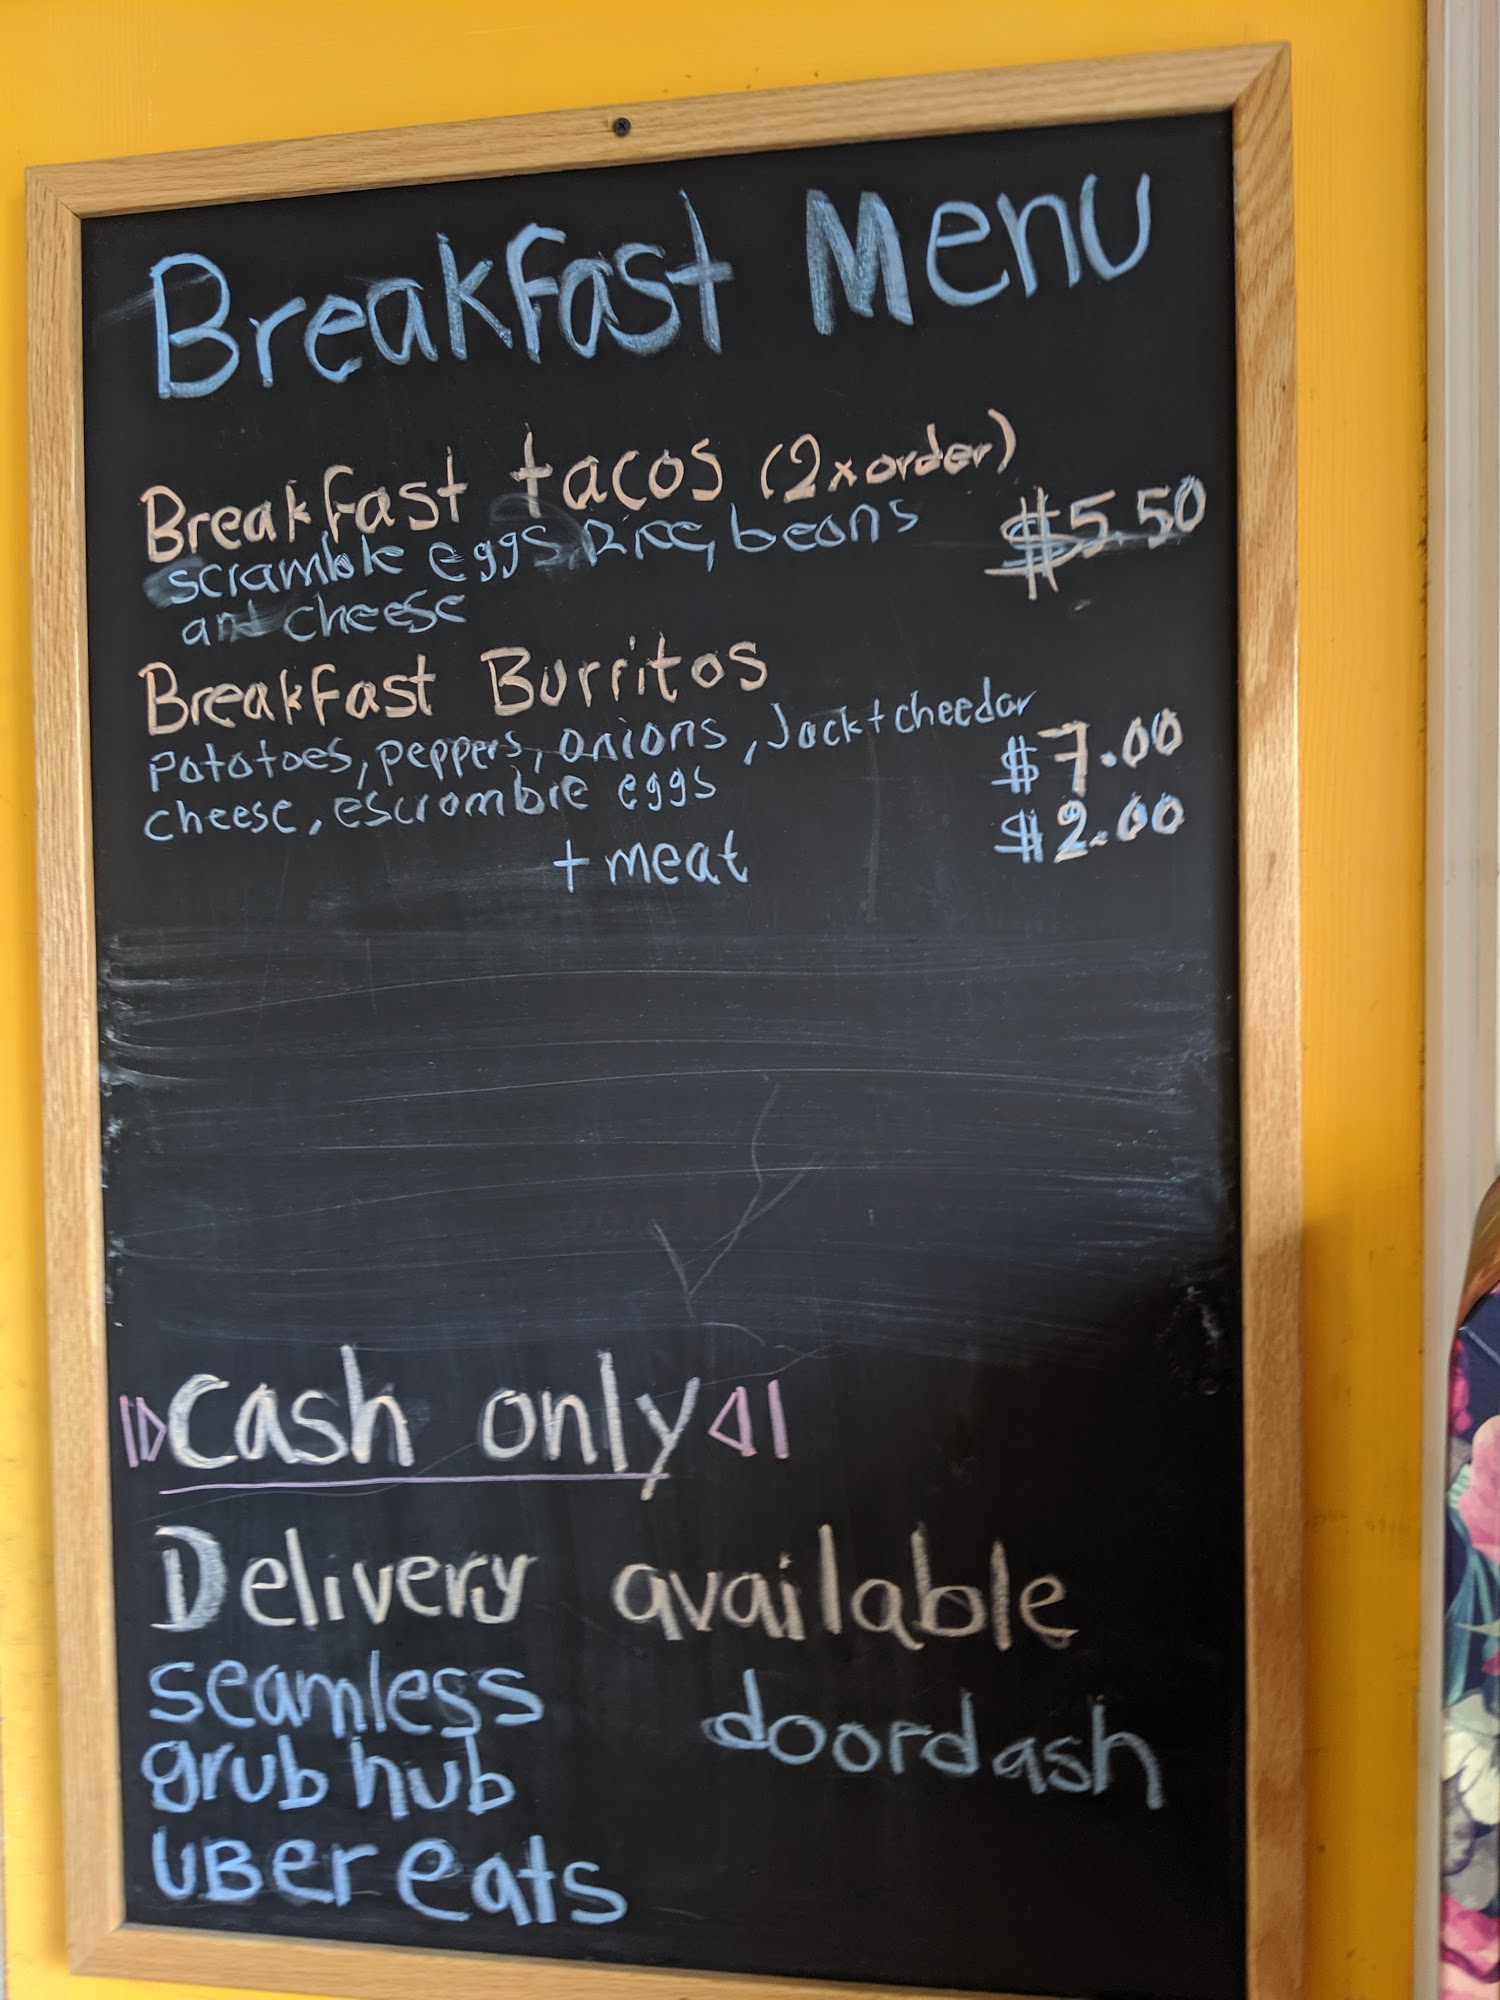 Breakfast Menu
Breakfast tacos (2x order)
scramble eggs, Rice, beans $5.50
and cheese
Breakfast Burritos
Pototoes, peppers, onions, Jack + cheedar
cheese, escrombie eggs $7.00
+ meat $2.00
Cash only
Delivery available
seamless doordash
grub hub
UBer eats